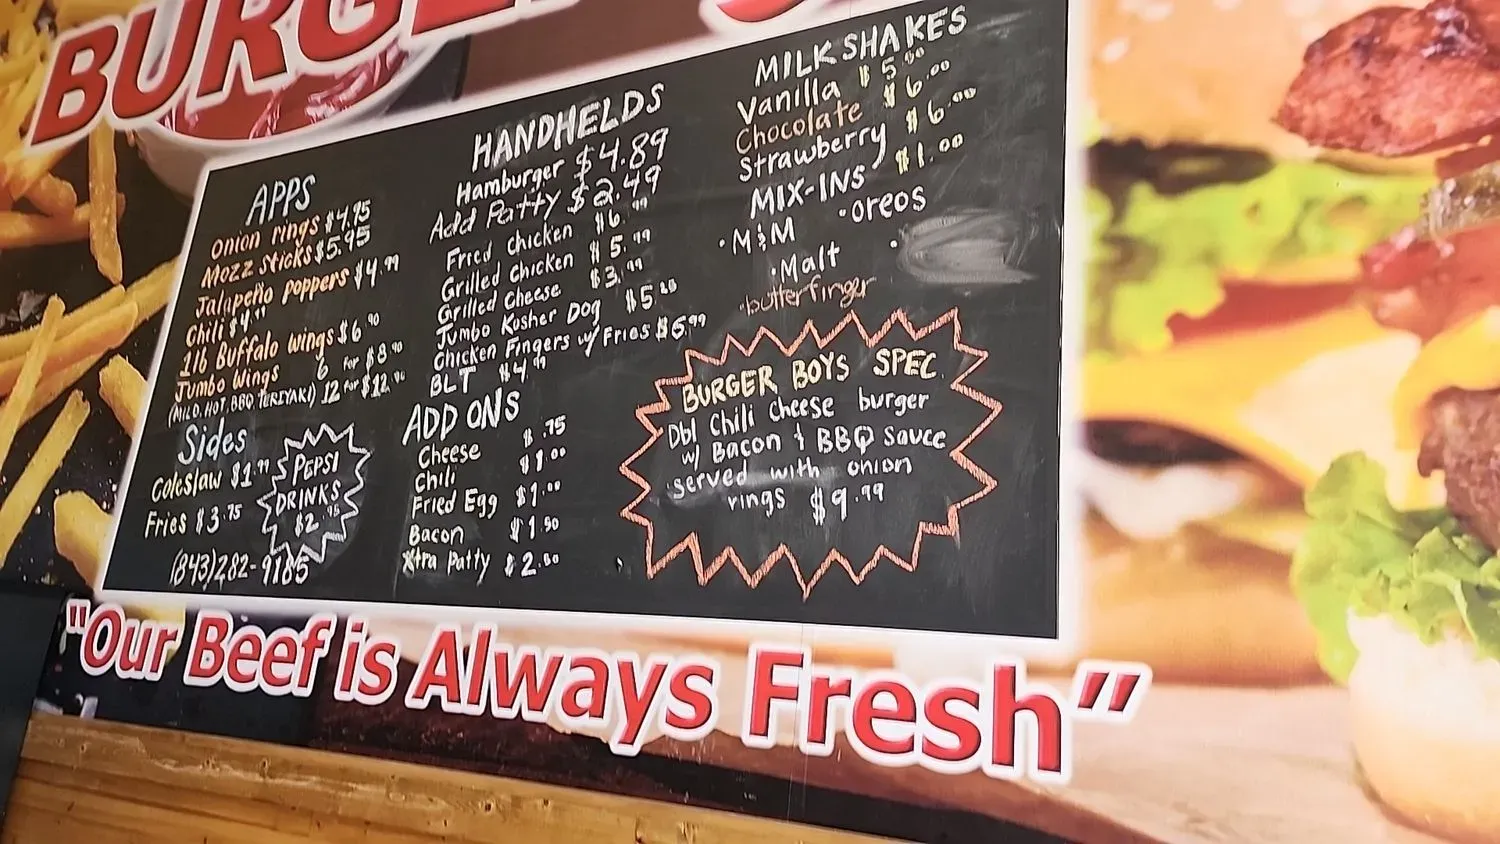 BURGE
APPS
Onion rings $4.95
Mozz Sticks $5.95
Jalapeño poppers $4.99
Chili $4.99
1lb Buffalo wings $6.90
Jumbo Wings 6 for $8.90
(MILD, HOT, BBQ, TEREYAKI) 12 for $12.90
Sides
Coleslaw $1.99
Fries $3.75
PEPSI
DRINKS
$2.95
(843)282-9185
HANDHELDS
Hamburger $4.89
Add Patty $2.49
Fried Chicken $6.99
Grilled Chicken $5.99
Grilled Cheese $3.99
Jumbo Kosher Dog $5.20
Chicken Fingers w/ Fries $6.99
BLT $4.99
ADD ONS
Cheese $.75
Chili $1.00
Fried Egg $1.00
Bacon $1.50
Xtra Patty $2.50
MILKSHAKES
Vanilla $5.00
Chocolate $6.00
Strawberry $6.00
MIX-INS $1.00
•M&M •oreos
•Malt
•butterfinger
BURGER BOYS SPEC
Dbl Chili Cheese burger
w/ Bacon & BBQ sauce
served with onion
rings $9.99
"Our Beef is Always Fresh"